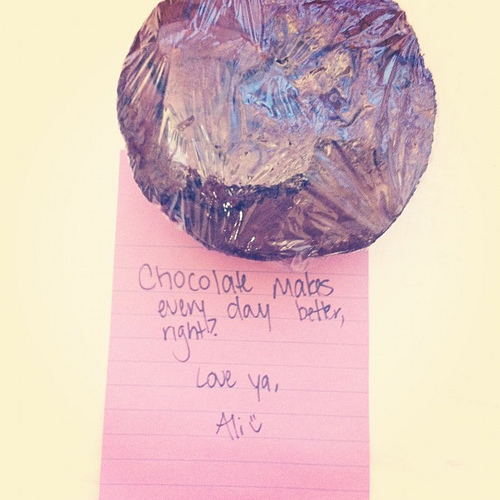 Chocolate makes
every day better,
right?
Love ya,
Ali